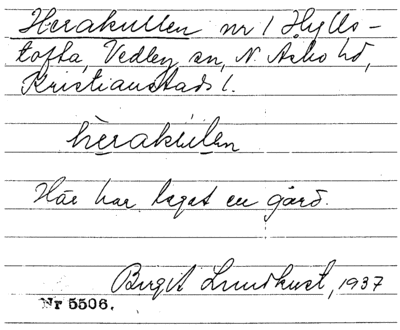 Herakullen nr 1 Hylls-
tofta, Vedby sn, N. Åsbo hd,
Kristianstads l.
hèrakúlen
Här har legat en gård.
Birgit Lundkvist, 1937
Nr 5506.